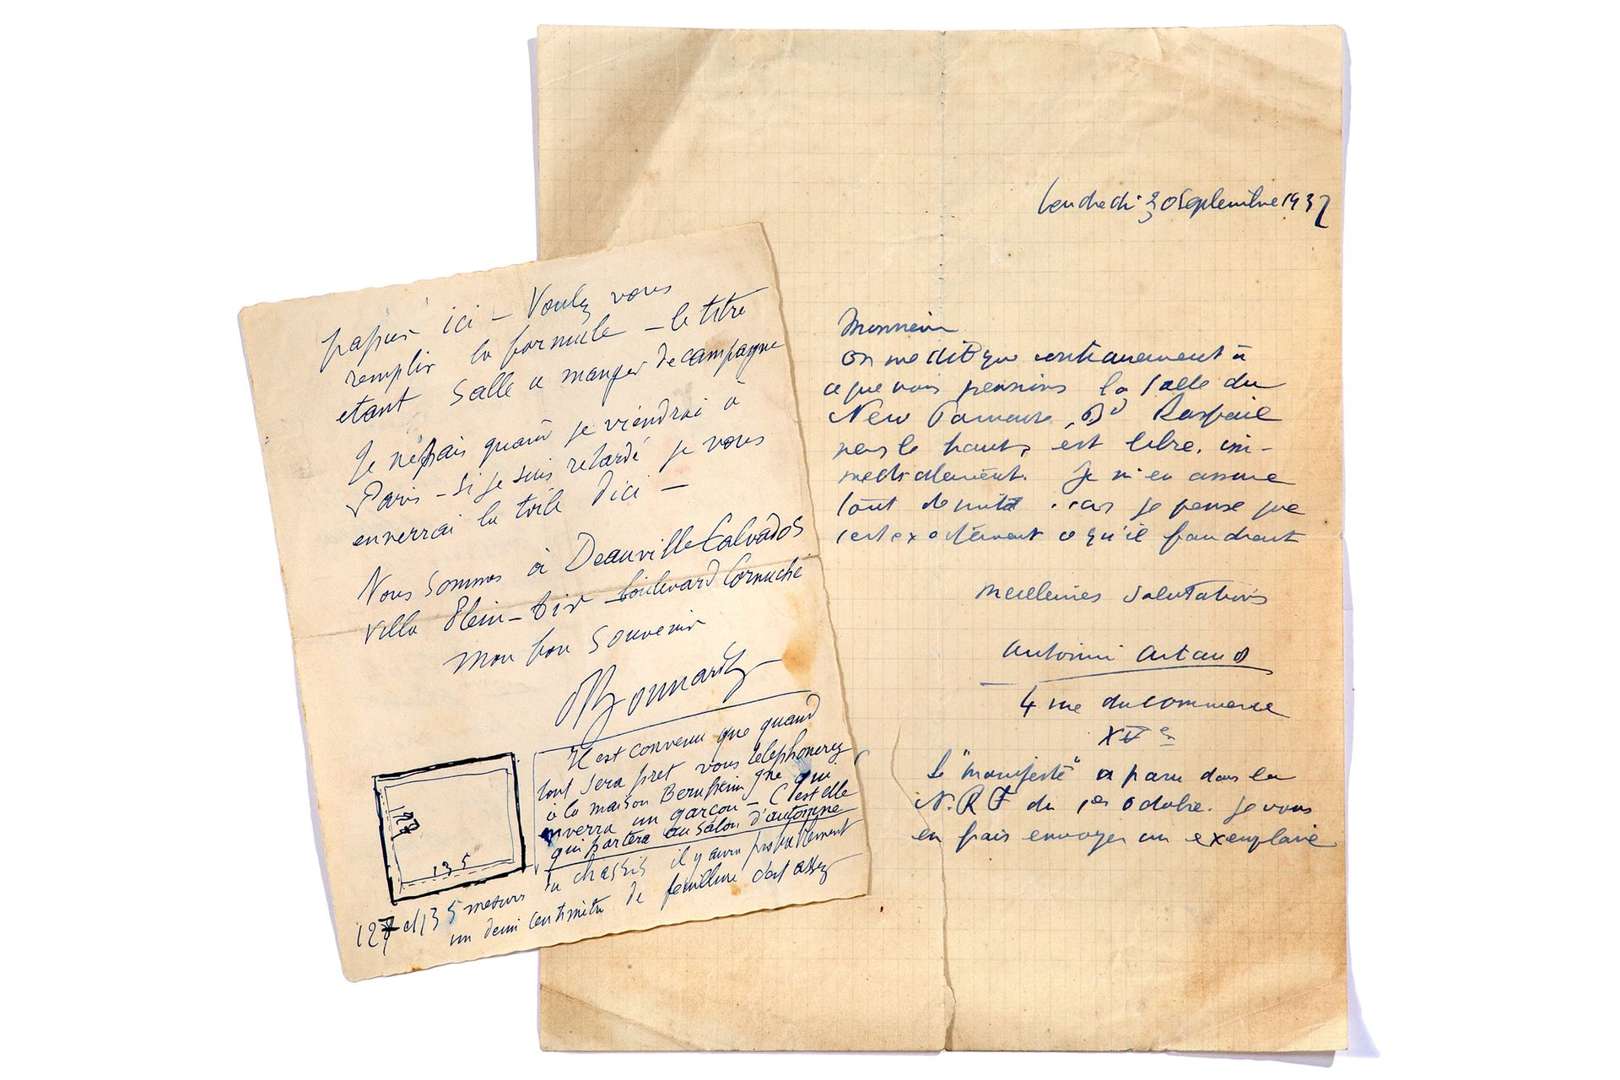 papier ici – Voulez vous
remplir la formule – le titre
etant Salle a manger de campagne
Je ne sais quand je viendrai à
Paris – Si je suis retardé je vous
enverrai la toile d'ici –
Nous sommes à Deauville Calvados
villa Plein-Air boulevard Cornuché
Mon bon souvenir
PBonnard
Il est convenu que quand
tout sera pret vous telephonerez
à la maison Bernheim jne qui
enverra un garçon – C'est elle
qui portera au salon d'automne
127
135
127 et 135 mesure du chassis il y aura probablement
un demi centimetre de feuillure c'est assez
Vendredi 30 Septembre 1932
Monsieur
On me dit que contrairement à
ce que nous pensions la salle du
New Bd Raspail
vers le haut, est libre, im-
mediatement. Je m'en assure
tout de suite car je pense que
c'est exactement ce qu'il faudrait
Meilleures salutations
Antonin Artaud
4 rue du Commerce
XVe
Le "manifeste" a paru dans la
N.R.F du 1er Octobre. Je vous
en fais envoyer un exemplaire